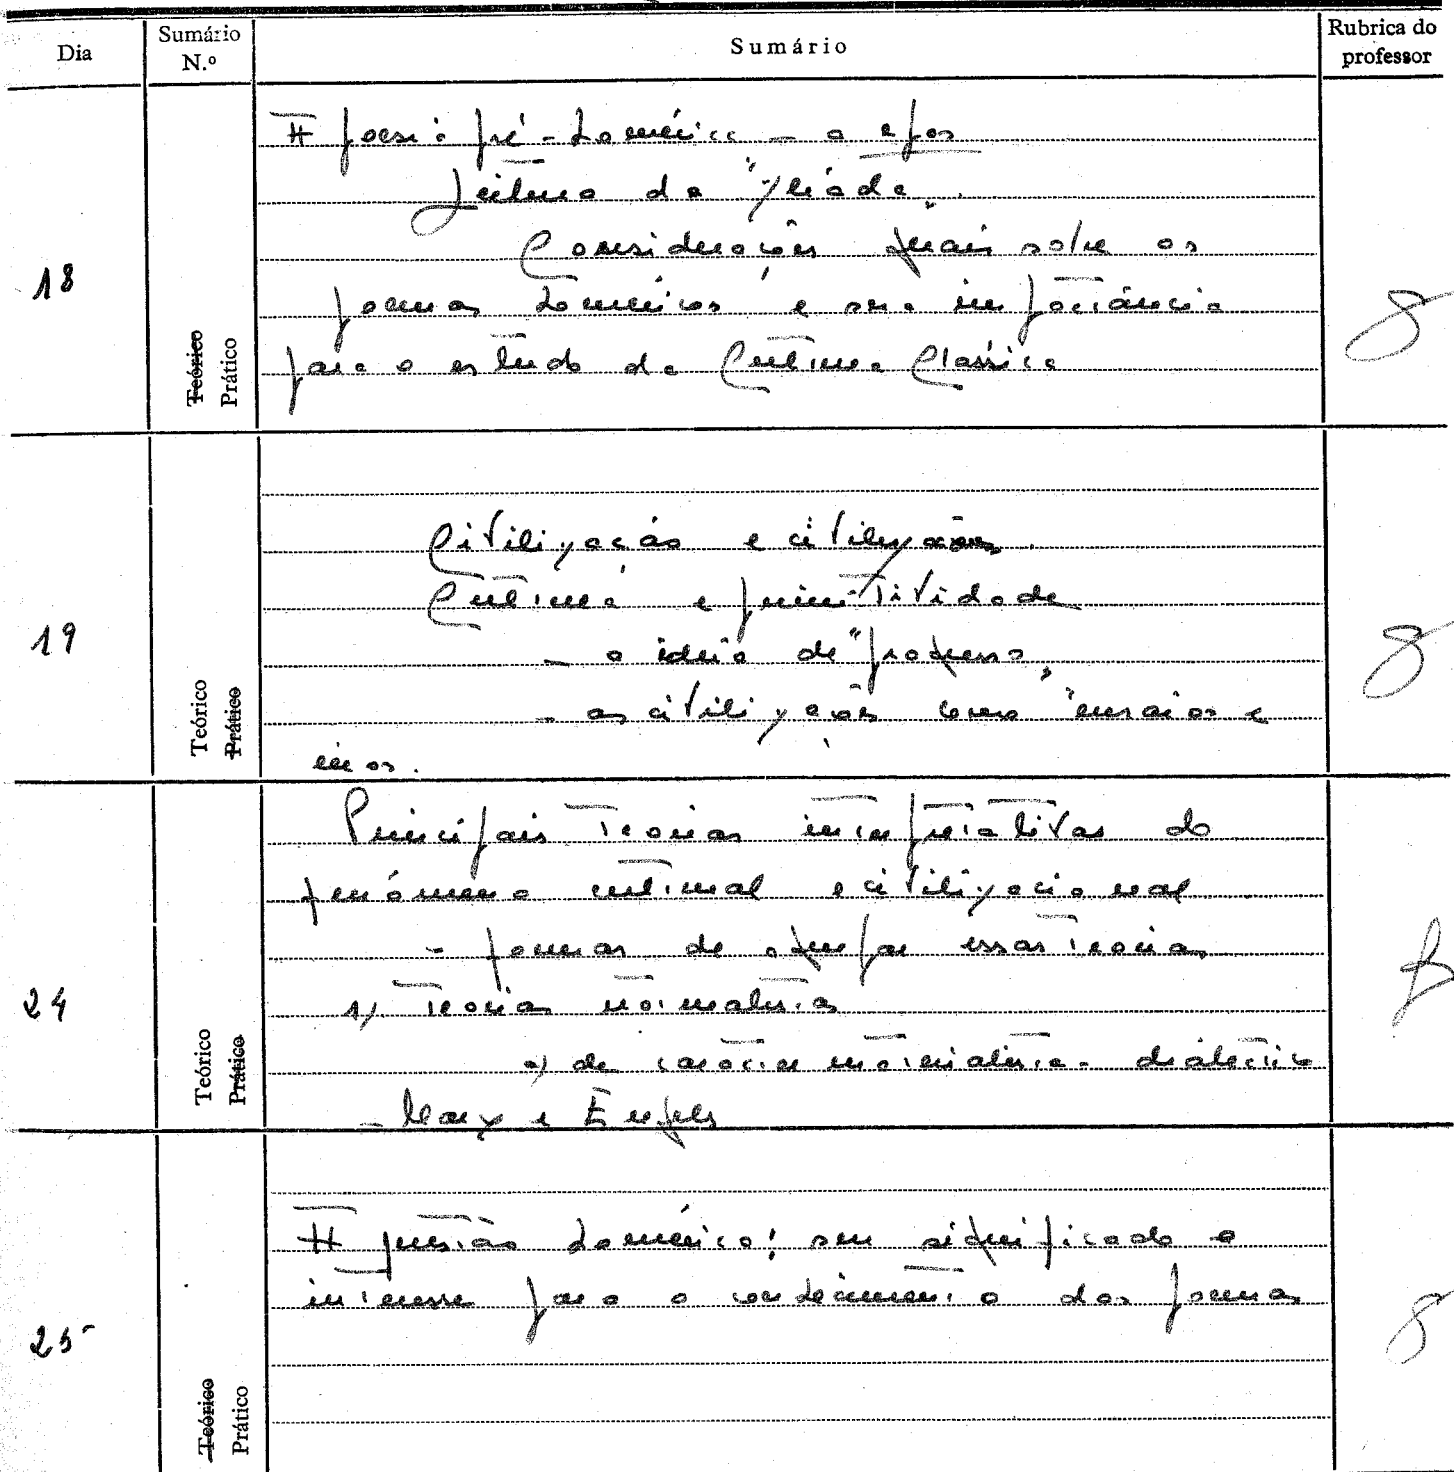 Dia
Sumário N.º
Sumário
Rubrica do professor
18
Teórico
Prático
A poesia pré-homérica – o epos
Leitura da "Ilíada".
Considerações gerais sobre os
poemas homéricos e sua importância
para o estudo da Cultura Clássica
19
Teórico
Prático
Civilização e civilizações.
Cultura e primitividade
– a ideia de "progresso"
– as civilizações como "ensaios e
24
Teórico
Prático
Principais teorias interpretativas do
fenómeno cultural e civilizacional
– formas de agrupar essas teorias
1) Teorias normativas
a) de carácter materialista-dialéctico
– Marx e Engels
25
Teórico
Prático
A questão homérica: seu significado e
interesse para o conhecimento dos poemas